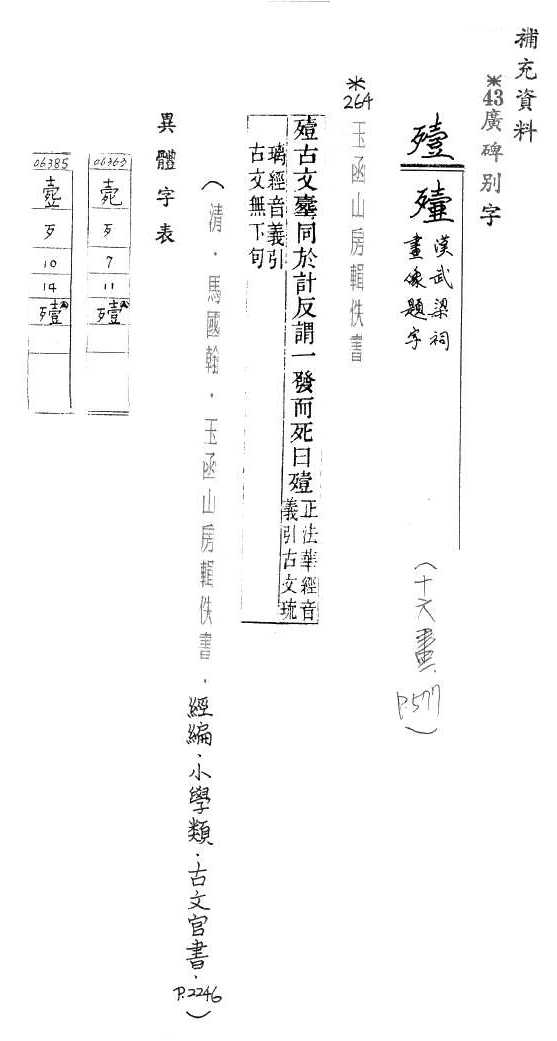 補充資料
*43廣碑別字
殪 殪 漢武梁祠
畫像題字
(十六畫 P.577)
*264 玉函山房輯佚書
殪古文同於計反謂一發而死曰殪 正法華經音
義引古文琉
璃經音義引
古文無下句
(清.馬國翰.玉函山房輯佚書.經編.小學類.古文官書.P.2246)
異體字表
06363
歹
7
11
殪
06385
歹
10
14
殪